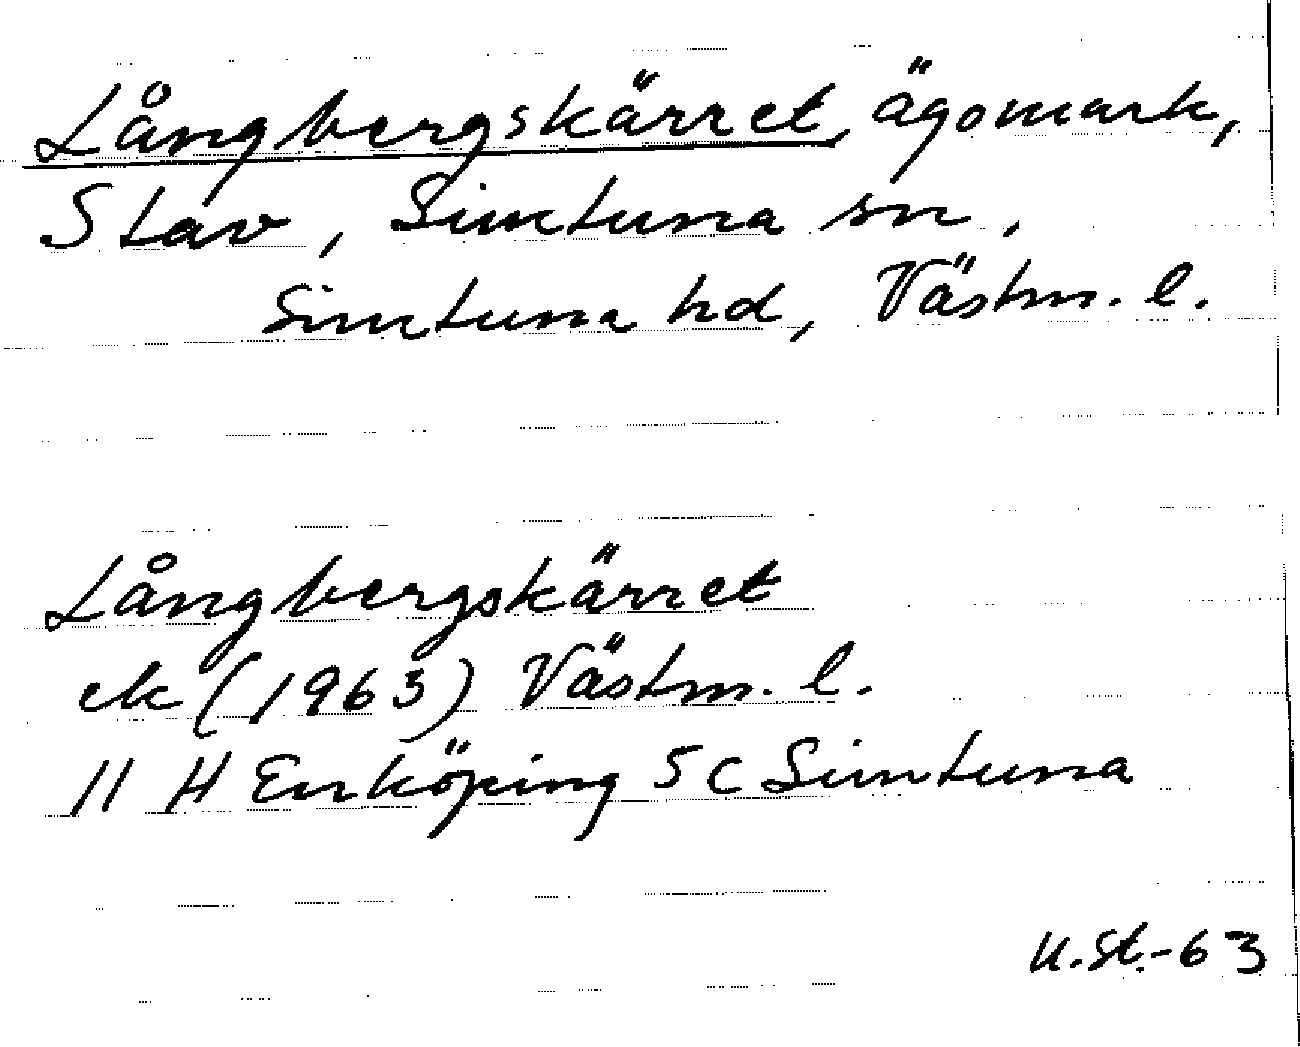 Långbergskärret, ägomark,
Stav, Simtuna sn,
Simtuna hd, Västm. l.
Långbergskärret
ek (1963) Västm. l.
11 H Enköping 5c Simtuna
U.St.-63